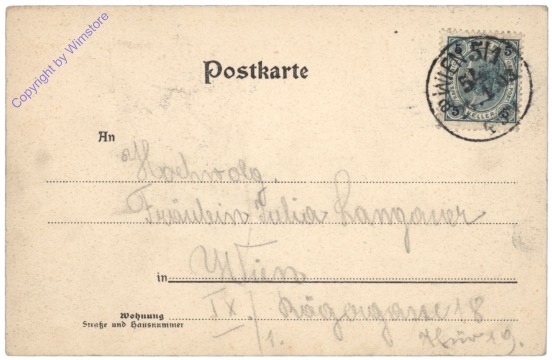 Copyright by Wimstore
Postkarte
WIEN 5/1
An
Hochwolg.
Fräulein Julia Langauer
in Wien
Wohnung
Straße und Hausnummer
IX./1. 18
Thür 19.